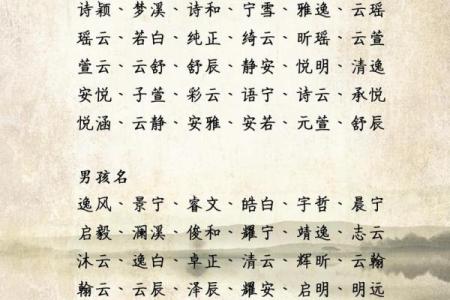 诗颖、梦溪、诗和、宁雪、雅逸、云瑶
瑶云、若白、纯正、绮云、昕瑶、云萱
萱云、云舒、舒辰、静安、悦明、清逸
安悦、子萱、彩云、语宁、诗云、承悦
悦涵、云静、安雅、安若、元萱、舒辰
男孩名
逸风、景宁、睿文、皓白、宇哲、晨宁
启毅、澜溪、俊和、耀宁、靖逸、志云
沐云、逸白、卓正、清云、辉昕、云翰
翰云、云辰、泽辰、耀安、启明、明远